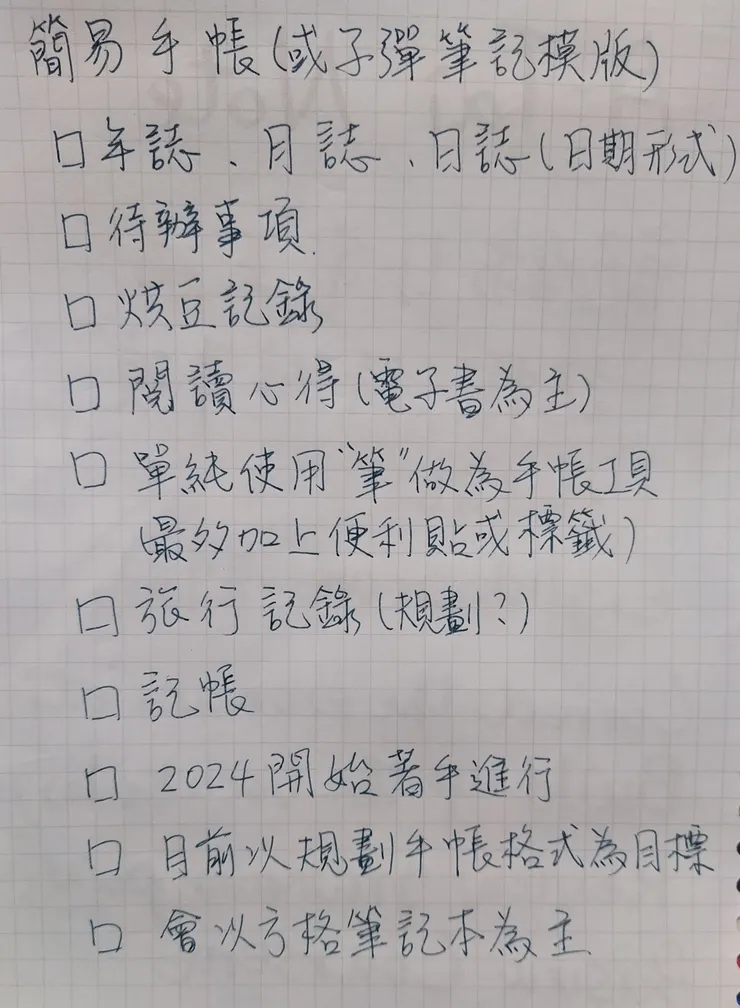 簡易手帳(或子彈筆記模版)
□ 年誌、月誌、日誌(日期形式)
□ 待辦事項
□ 烘豆記錄
□ 閱讀心得(電子書為主)
□ 單純使用"筆"做為手帳工具
(最多加上便利貼或標籤)
□ 旅行記錄(規劃?)
□ 記帳
□ 2024開始著手進行
□ 目前以規劃手帳格式為目標
□ 會以方格筆記本為主